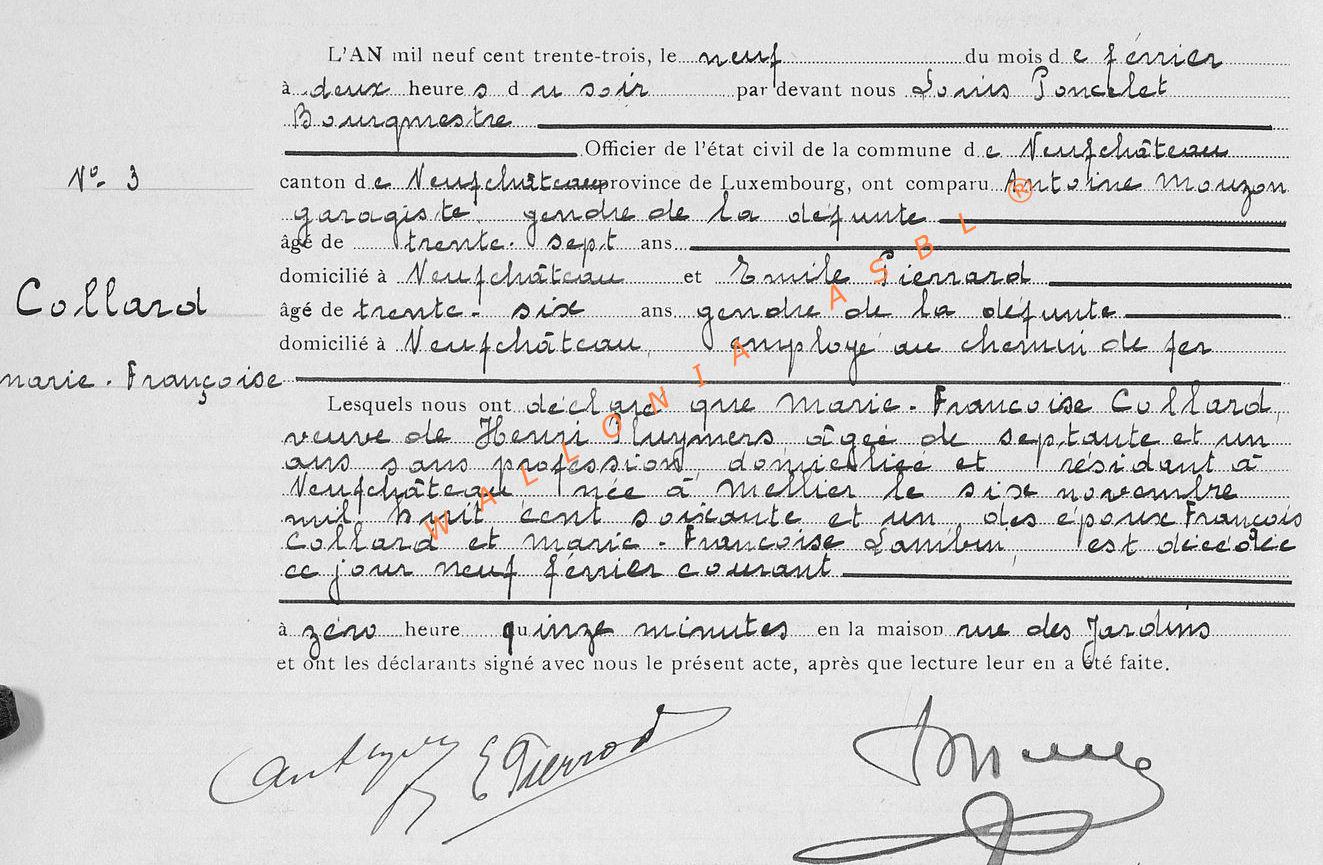 L'AN mil neuf cent trente-trois, le neuf du mois de février
à deux heures du soir par devant nous Louis Poncelet
Bourgmestre
Officier de l'état civil de la commune de Neufchâteau
N° 3
canton de Neufchâteau province de Luxembourg, ont comparu Antoine Mouzon
garagiste, gendre de la défunte
âgé de trente-sept ans
domicilié à Neufchâteau et Emile Pierrard
Collard
âgé de trente-six ans gendre de la défunte
domicilié à Neufchâteau, employé au chemin de fer
Marie-Françoise
Lesquels nous ont déclaré que Marie-Françoise Collard,
veuve de Henri Pluymers âgée de septante et un
ans sans profession, domiciliée et résidant à
Neufchâteau, née à Mellier le six novembre
mil huit cent soixante et un, des époux François
Collard et Marie-Françoise Lambin, est décédée
ce jour neuf février courant
à zéro heure quinze minutes en la maison rue des Jardins
et ont les déclarants signé avec nous le présent acte, après que lecture leur en a été faite.
E Pierrard
WALLONIA ASBL ®